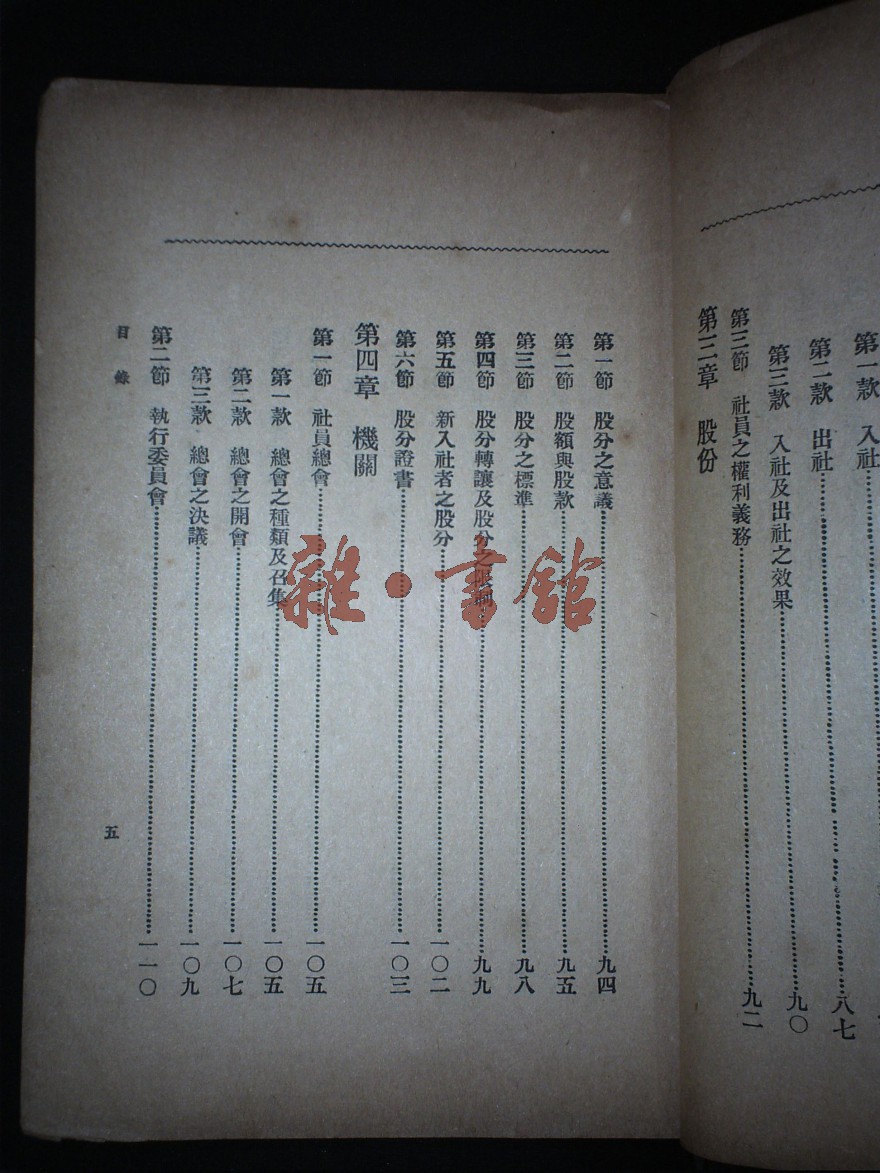 第一款 入社
第二款 出社 八七
第三款 入社及出社之效果 九〇
第三節 社員之權利義務 九二
第三章 股份
第一節 股分之意議 九四
第二節 股額與股款 九五
第三節 股分之標準 九八
第四節 股分轉讓及股分之限制 九九
第五節 新入社者之股分 一〇二
第六節 股分證書 一〇三
第四章 機關
第一節 社員總會 一〇五
第一款 總會之種類及召集 一〇五
第二款 總會之開會 一〇七
第三款 總會之決議 一〇九
第二節 執行委員會 一一〇
目錄
五
雜·書館